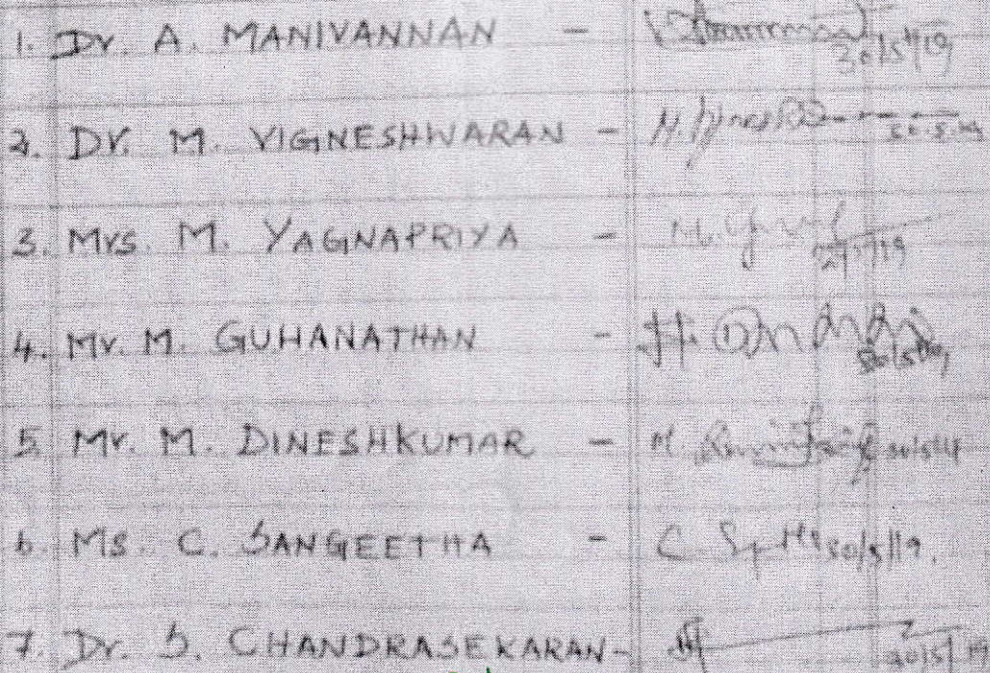 1. Dr. A. MANIVANNAN - 30/5/19
2. Dr. M. VIGNESHWARAN - 30.5.19
3. Mrs. M. YAGNAPRIYA - M.
4. Mr. M. GUHANATHAN -
5. Mr. M. DINESHKUMAR - M. 30/5/19
6. Ms. C. SANGEETHA - C. 30/5/19.
7. Dr. S. CHANDRASEKARAN - 30/5/19